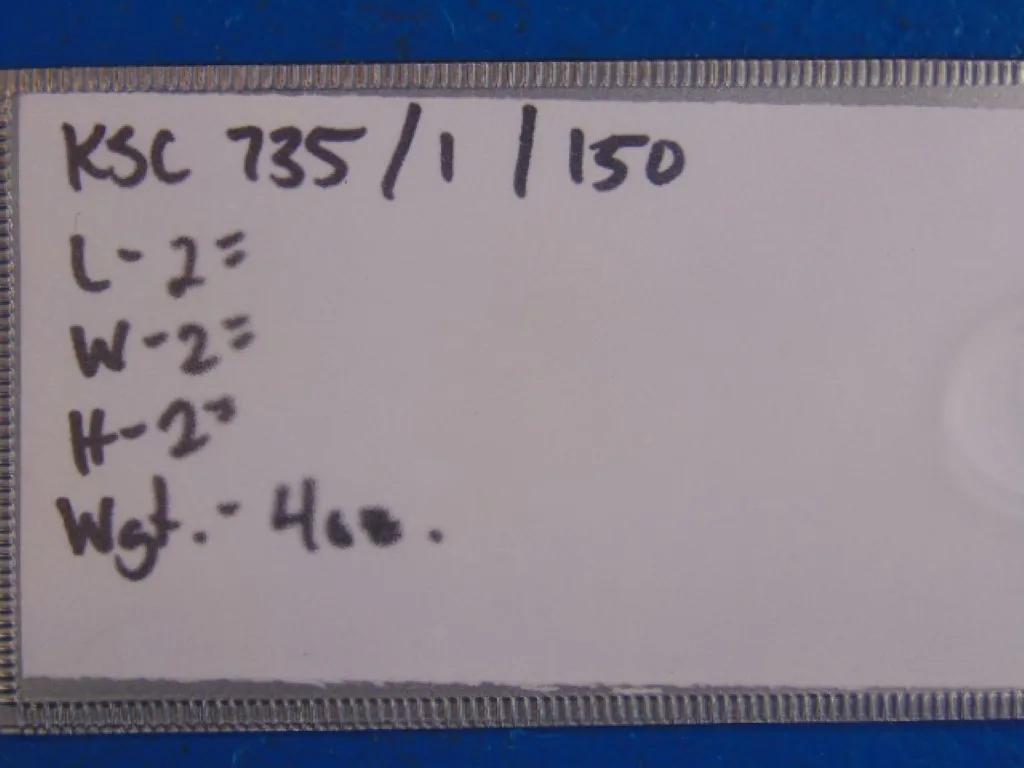 KSC 735/1/150
L-2=
W-2=
H-2=
Wgt.-